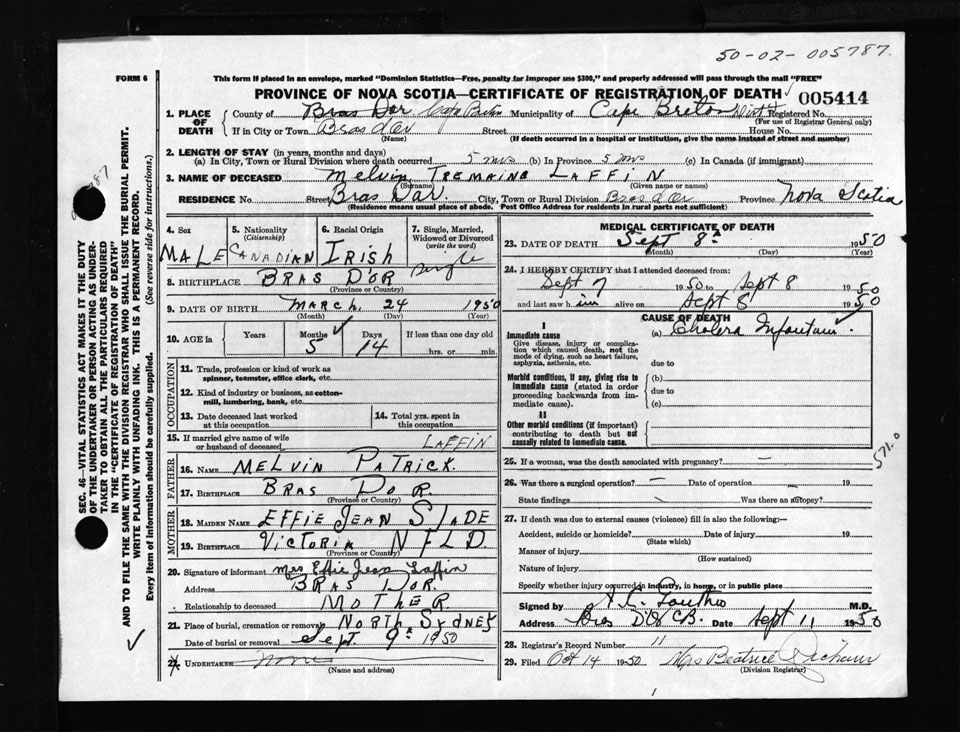 50-02-005787.
FORM 6
This form if placed in an envelope, marked "Dominion Statistics—Free, penalty for improper use $300," and properly addressed will pass through the mail "FREE"
PROVINCE OF NOVA SCOTIA—CERTIFICATE OF REGISTRATION OF DEATH 005414
1. PLACE OF DEATH County of Bras Dor Cape Breton Municipality of Cape Breton Registered No.
(For use of Registrar General only)
If in City or Town Bras d'Or Street House No.
(Name) (If death occurred in a hospital or institution, give the name instead of street and number)
2. LENGTH OF STAY (in years, months and days)
(a) In City, Town or Rural Division where death occurred 5 mos (b) In Province 5 mos (c) In Canada (if immigrant)
3. NAME OF DECEASED Melvin Tremaine Laffin
(Surname) (Given name or names)
RESIDENCE No. Street Bras Dar. City, Town or Rural Division Bras d'Or Province Nova Scotia
(Residence means usual place of abode. Post Office Address for residents in rural parts not sufficient)
4. Sex 5. Nationality (Citizenship) 6. Racial Origin 7. Single, Married, Widowed or Divorced (write the word)
MALE CANADIAN IRISH Single
8. BIRTHPLACE BRAS D'OR
(Province or Country)
9. DATE OF BIRTH MARCH 24 1950
(Month) (Day) (Year)
10. AGE in Years Months Days If less than one day old
5 14 hrs. or min.
OCCUPATION
11. Trade, profession or kind of work as spinner, teamster, office clerk, etc.
12. Kind of industry or business, as cotton-mill, lumbering, bank, etc.
13. Date deceased last worked at this occupation
14. Total yrs. spent in this occupation
15. If married give name of wife or husband of deceased
LAFFIN
FATHER
16. NAME MELVIN PATRICK.
17. BIRTHPLACE BRAS DOR.
(Province or Country)
MOTHER
18. MAIDEN NAME EFFIE JEAN SLADE
19. BIRTHPLACE VICTORIA NFLD.
(Province or Country)
20. Signature of informant Mrs Effie Jean Laffin
Address BRAS DOR.
Relationship to deceased MOTHER
21. Place of burial, cremation or removal NORTH SYDNEY
Date of burial or removal Sept. 9th 1950
22. UNDERTAKER none
(Name and address)
MEDICAL CERTIFICATE OF DEATH
23. DATE OF DEATH Sept 8 1950
(Month) (Day) (Year)
24. I HEREBY CERTIFY that I attended deceased from:
Sept 7 1950 to Sept 8 1950
and last saw him alive on Sept 8 1950
CAUSE OF DEATH
I
Immediate cause (a) Cholera Infantum.
Give disease, injury or complication which caused death, not the mode of dying, such as heart failure, asphyxia, asthenia, etc.
due to
Morbid conditions, if any, giving rise to immediate cause (stated in order proceeding backwards from immediate cause).
(b)
due to
(c)
II
Other morbid conditions (if important) contributing to death but not causally related to immediate cause.
571.0
25. If a woman, was the death associated with pregnancy? —
26. Was there a surgical operation? — Date of operation 19
State findings Was there an autopsy?
27. If death was due to external causes (violence) fill in also the following:—
Accident, suicide or homicide? Date of injury 19
(State which)
Manner of injury
(How sustained)
Nature of injury
Specify whether injury occurred in industry, in home, or in public place
Signed by M.D.
Address Bras D'Or C.B. Date Sept 11 1950
28. Registrar's Record Number 11
29. Filed Oct 14 1950 Mrs Beatrice
(Division Registrar)
SEC. 46—VITAL STATISTICS ACT MAKES IT THE DUTY
OF THE UNDERTAKER OR PERSON ACTING AS UNDERTAKER TO OBTAIN ALL THE PARTICULARS REQUIRED
IN THE "CERTIFICATE OF REGISTRATION OF DEATH"
AND TO FILE THE SAME WITH THE DIVISION REGISTRAR WHO SHALL ISSUE THE BURIAL PERMIT.
WRITE PLAINLY WITH UNFADING INK. THIS IS A PERMANENT RECORD.
Every item of information should be carefully supplied. (See reverse side for instructions.)